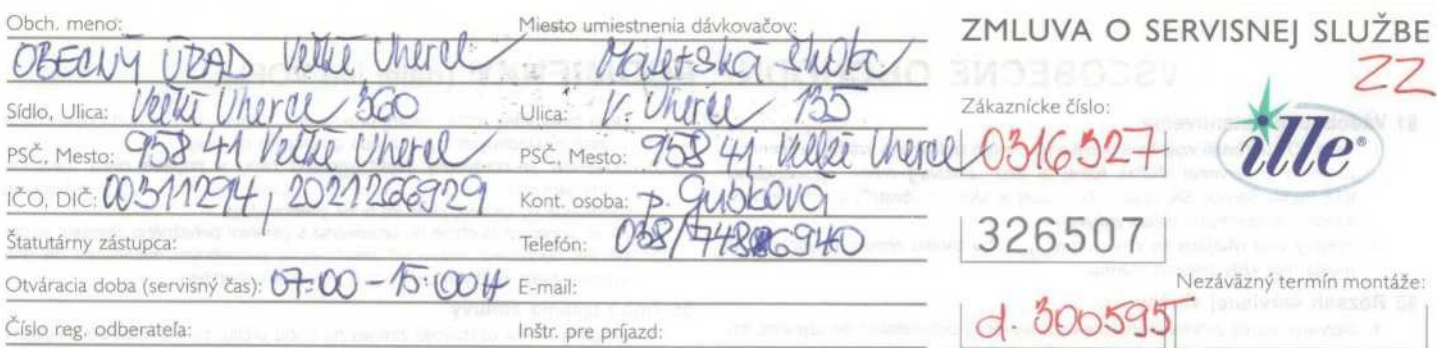 Obch. meno: OBECNÝ ÚRAD Veľké Uherce
Sídlo, Ulica: Veľké Uherce 360
PSČ, Mesto: 958 41 Veľké Uherce
IČO, DIČ: 00311294, 2021266929
Štatutárny zástupca:
Otváracia doba (servisný čas): 07:00 - 15:00H
Číslo reg. odberateľa:
Miesto umiestnenia dávkovačov: Materská škola
Ulica: V. Uherce 135
PSČ, Mesto: 958 41 Veľké Uherce
Kont. osoba: p. Gubková
Telefón: 038/7486940
E-mail:
Inštr. pre príjazd:
ZMLUVA O SERVISNEJ SLUŽBE
ZZ
Zákaznícke číslo:
0316327
ille®
326507
Nezáväzný termín montáže:
d. 300595